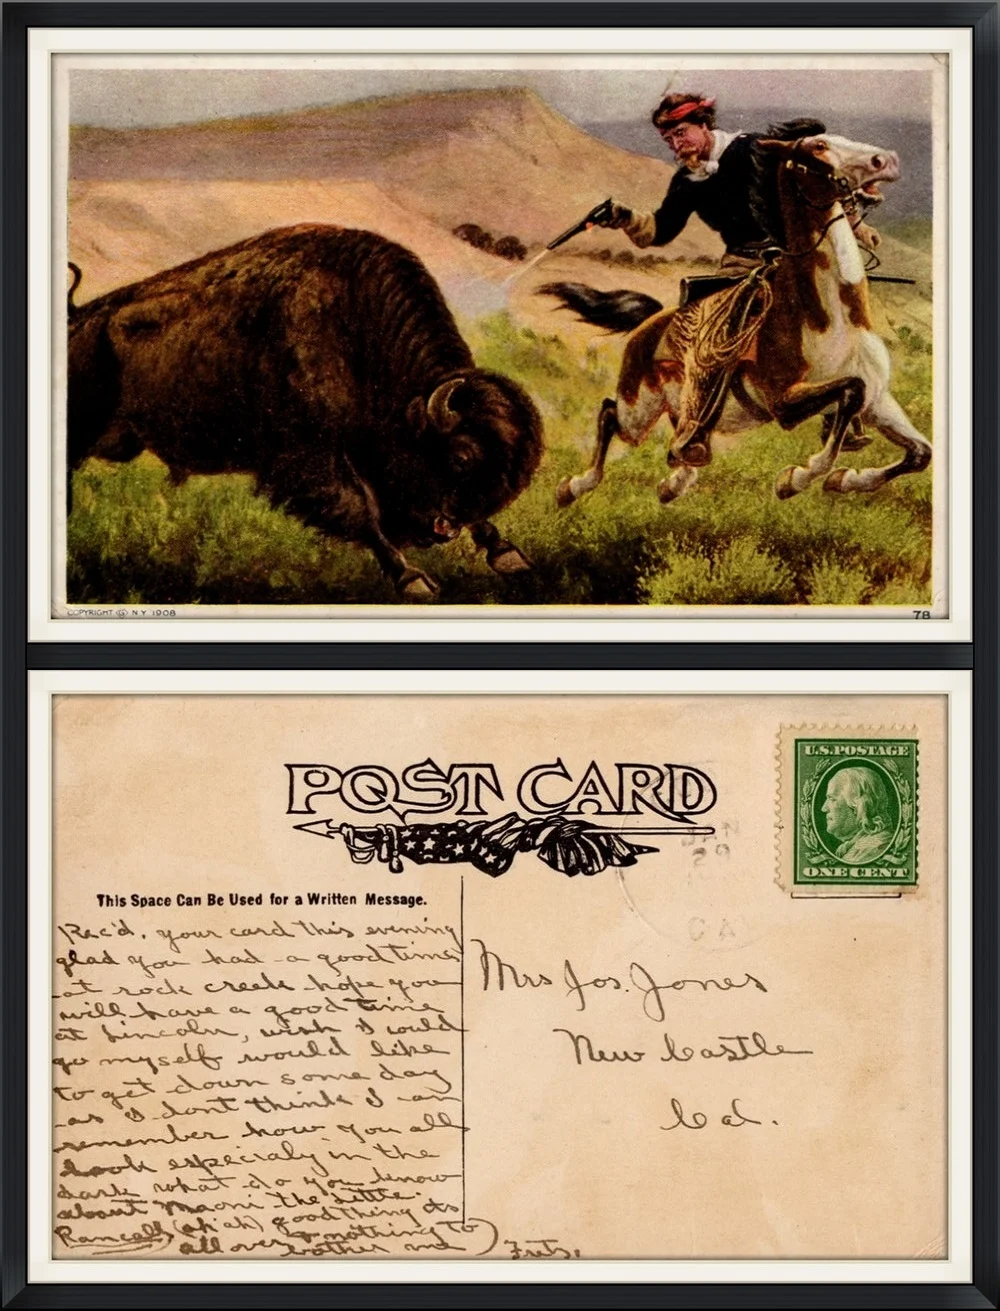 COPYRIGHT G N.Y. 1908
78
POST CARD
U.S. POSTAGE
ONE CENT
This Space Can Be Used for a Written Message.
Rec'd. your card this evening
glad you had a good time
at rock creek hope you
will have a good time
at Lincoln, wish I could
go myself would like
to get down some day
as I dont think I can
remember how you all
look especialy in the
dark what do you know
about the little
(ah ah) good thing its
all over nothing to
bother me
Mrs Jos. Jones
New Castle
Cal.